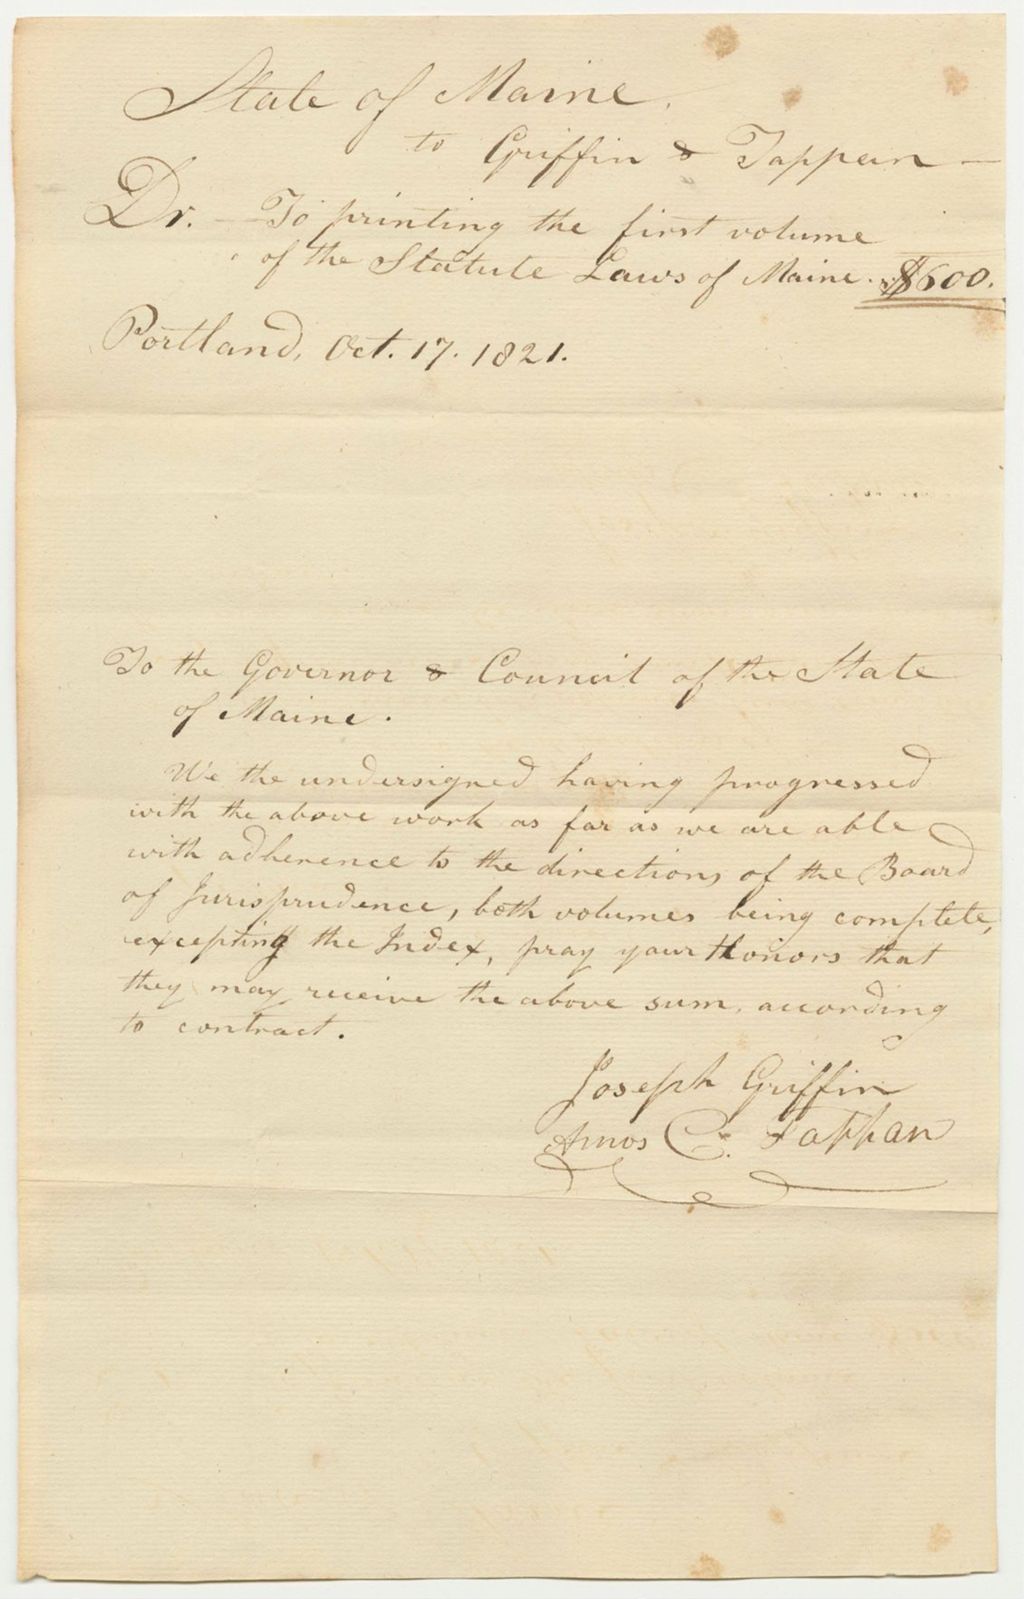 State of Maine.
to Griffin & Tappan —
Dr. — To printing the first volume
of the Statute Laws of Maine. $600.
Portland, Oct. 17. 1821.
To the Governor & Council of the State
of Maine.
We the undersigned having progressed
with the above work as far as we are able
with adherence to the directions of the Board
of Jurisprudence, both volumes being complete,
excepting the Index, pray your Honors that
they may receive the above sum, according
to contract.
Joseph Griffin
Amos C. Tappan